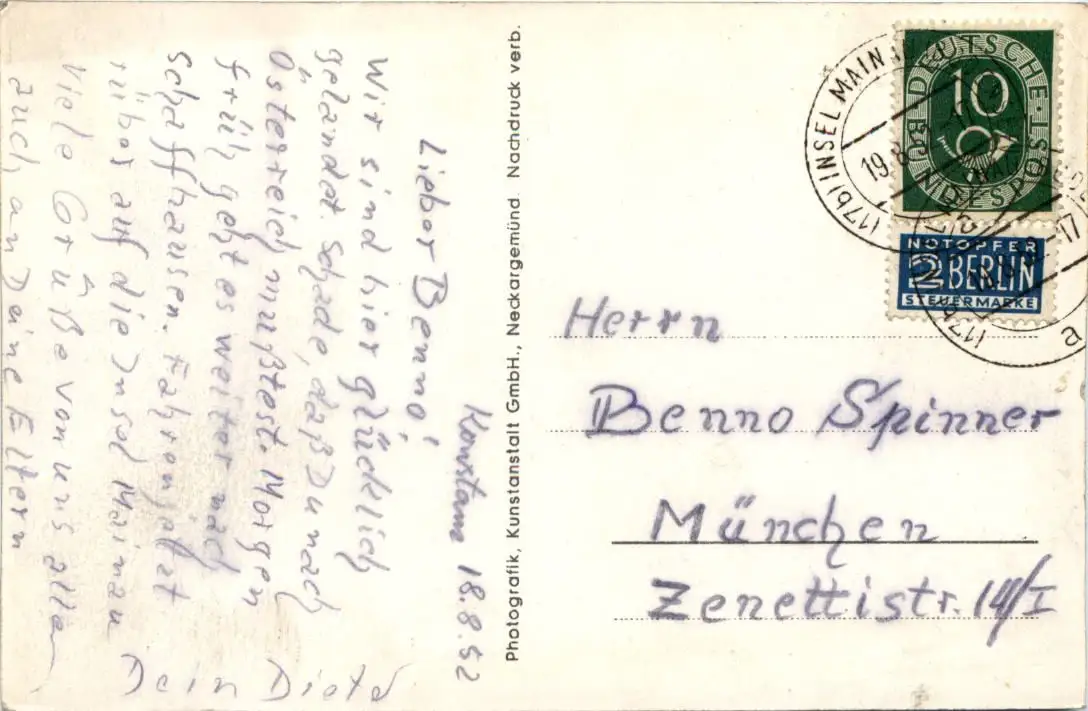 Konstanz 18.8.52
Lieber Benno!
Wir sind hier glücklich
gelandet. Schade, daß Du nach
Österreich mußtest. Morgen
früh geht es weiter nach
Schaffhausen. Fahren jetzt
rüber auf die Insel Mainau
Viele Grüße von uns allen
auch an Deine Eltern
Dein
Photografik, Kunstanstalt GmbH., Neckargemünd. Nachdruck verb.
DEUTSCHE
BUNDESPOST
10
NOTOPFER
2 BERLIN
STEUERMARKE
(17b) INSEL MAINAU
19.8.52
-17
a
Herrn
Benno Spinner
München
Zenettistr. 14/I